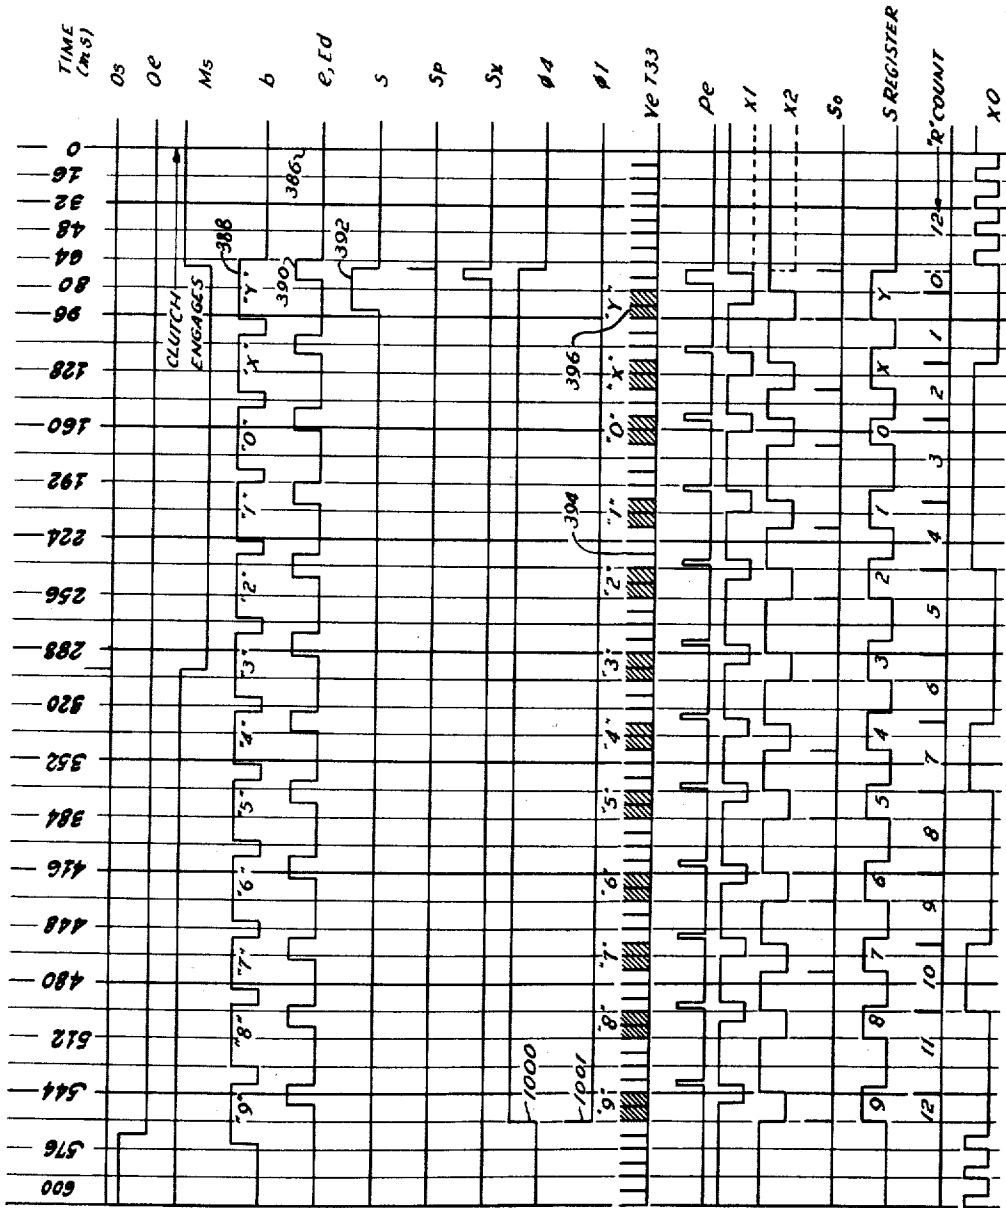 TIME
(ms)
Os
Oe
Ms
b
e, Ed
S
Sp
Sx
φ4
φ1
Ye T33
Pe
X1
X2
So
S REGISTER
"R" COUNT
XO
0
16
32
48
64
80
96
128
160
192
224
256
288
320
352
384
416
448
480
512
544
576
600
CLUTCH
ENGAGES
386
388
390
392
394
396
1000
1001
"Y" "X" "0" "1" "2" "3" "4" "5" "6" "7" "8" "9"
"Y" "X" "0" "1" "2" "3" "4" "5" "6" "7" "8" "9"
Y X 0 1 2 3 4 5 6 7 8 9
12 0 1 2 3 4 5 6 7 8 9 10 11 12